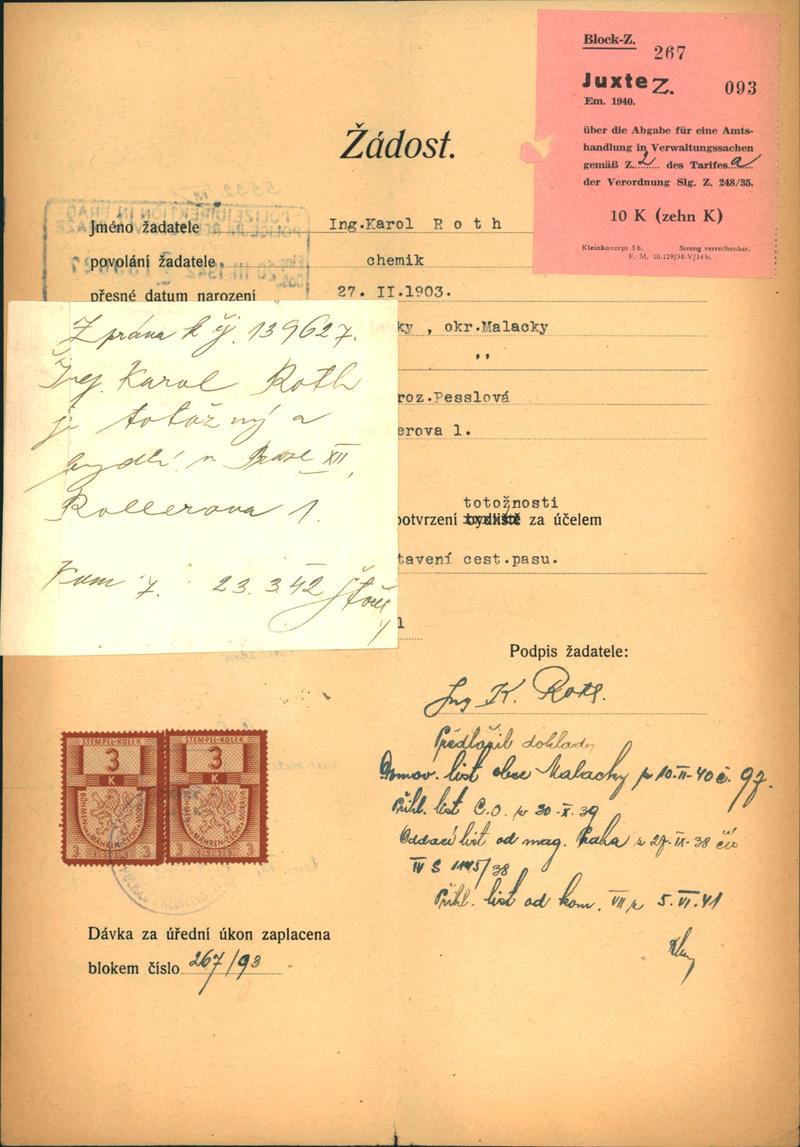 Block-Z. 267
Juxte Z. 093
Em. 1940.
über die Abgabe für eine Amts-
handlung in Verwaltungssachen
gemäß Z. 2 des Tarifes a
der Verordnung Slg. Z. 248/35.
10 K (zehn K)
Kleinkonzept 5 b. Streng verrechenbar.
F. M. 10.129/38-V/14 b.
Žádost.
Jméno žadatele Ing.Karol Roth
povolání žadatele chemik
přesné datum narození 27. II.1903.
ky , okr.Malacky
,,
roz.Pesslová
erova 1.
totožnosti
potvrzení bydliště za účelem
tavení cest.pasu.
l
Zpráva k čj. 139627.
Ing. Karol Roth
je totožný a
bydlí v Praze XII,
Kollerova 1.
Kom 7. 23.3.42
Podpis žadatele:
Ing K. Roth.
Předložil doklady
Domov. list obce Malacky z 10.II-40 č. 97.
Přihl. list C.O. z 30-X.39
Oddací list od mag. Praha z 27-IX-38 čís
IV S 1145/38
Přihl. list od kom. VII z 5.VI.41
STEMPEL-KOLEK
3
K
BÖHMEN UND MÄHREN-ČECHY A MORAVA
3 1939 3
STEMPEL-KOLEK
3
K
BÖHMEN UND MÄHREN-ČECHY A MORAVA
3 1939 3
Dávka za úřední úkon zaplacena
blokem číslo 267/93